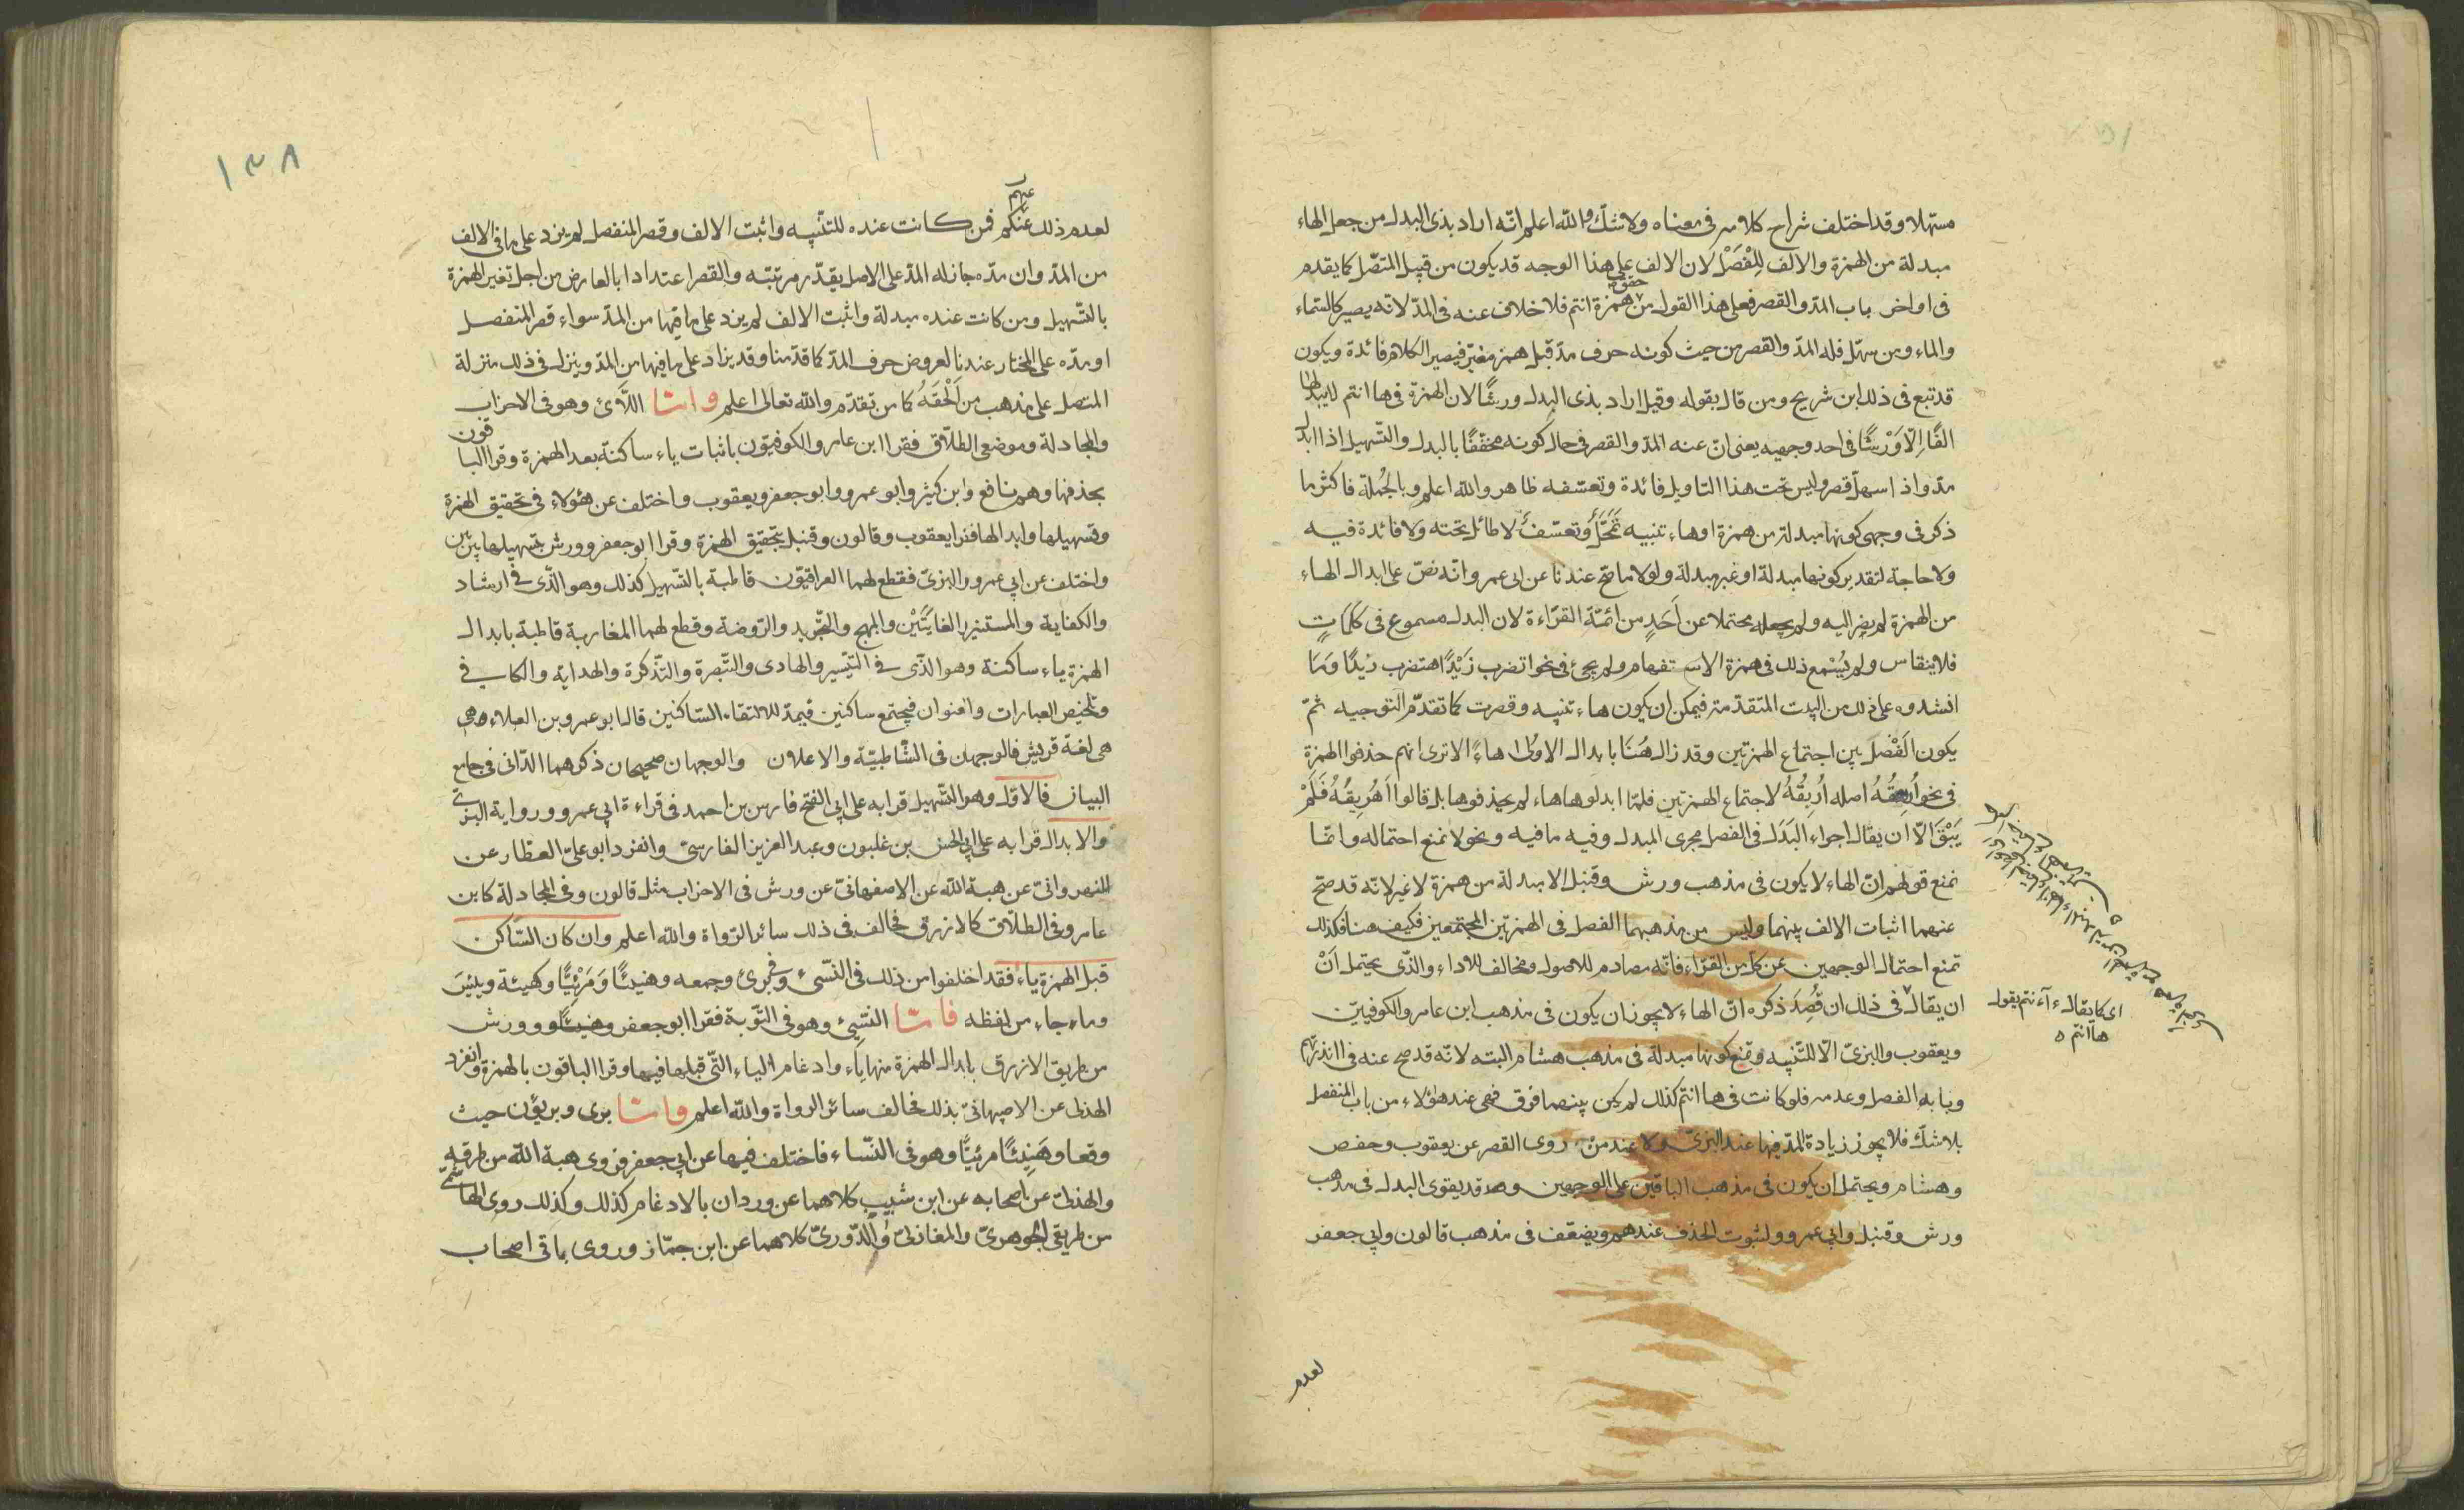 مسهلا وقد اختلف شراح كلامه فى معناه ولا شك والله اعلم انه اراد بذى البدل من جعل الهاء
مبدلة من الهمزة والالف للفصل لان الالف على هذا الوجه قد يكون من قبيل المتصل كما يقدم
فى اواخر باب المد والقصر فعلى هذا القول من حقق همزة انتم فلا خلاف عنه فى المد لانه يصير كالسماء
والماء ومن سهل فله المد والقصر من حيث كونه حرف مد قبل همز مغير فيصير الكلام فائدة ويكون
قد تبع فى ذلك ابن شريح ومن قال بقوله وقيل اراد بذى البدل ورشا لان الهمزة فى هاانتم لايبدلها
الفا الا ورشا فى احد وجهيه يعنى ان عنه المد والقصر فى حال كونه مخففا بالبدل والتسهيل اذا ابدل
مد واذا سهل قصر وليس تحت هذا التاويل فائدة وتعسفه ظاهر والله اعلم وبالجملة فاكثر ما
ذكر فى وجهى كونها مبدلة من همزة اوهاء تنبيه تمحل وتعسف لا طائل تحته ولا فائدة فيه
ولا حاجة لتقدير كونها مبدلة او غير مبدلة ولولا ما صح عندنا عن ابى عمرو انه نص على ابدال الهاء
من الهمزة لم يصر اليه ولم يجعله محتملا عن احد من ائمة القراءة لان البدل مسموع فى كلمات
فلا ينقاس ولم يسمع ذلك فى همزة الاستفهام ولم يجئ فى نحو اتضرب زيدا هتضرب زيدا وما
انشدوه على ذلك من البيت المتقدمة فيمكن ان يكون هاء تنبيه وقصرت كما تقدم التوجيه ثم
يكون الفصل بين اجتماع الهمزتين وقد زال هنا بابدال الاولى هاء الا ترى انهم حذفوا الهمزة
فى نحو اريقه اصله اأريقه لاجتماع الهمزتين فلما ابدلوها هاء لم يحذفوها بل قالوا اهريقه فلم
يبق الا ان يقال اجراء البدل فى الفصل مجرى المبدل وفيه ما فيه ونحو لا نمنع احتماله وانما
نمنع قولهم ان الهاء لا يكون فى مذهب ورش وقنبل الا مبدلة من همزة لا غير لانه قد صح
عنهما اثبات الالف بينهما وليس من مذهبهما الفصل فى الهمزتين المجتمعين فكيف هنا فكذلك
تمنع احتمال الوجهين عن كل من القراء فانه مصادم للاصول ومخالف للاداء والذى يحتمل ان
ان يقال فى ذلك ان قصد ذكره ان الهاء لا يجوز ان يكون فى مذهب ابن عامر والكوفيين
ويعقوب والبزى الا للتنبيه وتمنع كونها مبدلة فى مذهب هشام البته لانه قد صح عنه فى اانذرتهم
وبابه الفصل وعدمه فلو كانت فى هاانتم كذلك لم يكن بينهما فرق فهى عند هؤلاء من باب المنفصل
بلا شك فلا يجوز زيادة المد فيها عند البزى ولا عند من روى القصر عن يعقوب وحفص
وهشام ويحتمل ان يكون فى مذهب الباقين على الوجهين وقد يقوى البدل فى مذهب
ورش وقنبل وابي عمرو ولثبوت الحذف عندهم ويضعف فى مذهب قالون وابي جعفر
اى كما يقال ءآنتم يقول
هاانتم
لعدم
١٣٨
لعدم ذلك عنهم فمن كانت عنده للتنبيه واثبت الالف وقصر المنفصل لم يزد على ما فى الالف
من المد وان مده جاز له المد على الاصل بقدر مرتبته والقصر اعتدادا بالعارض من اجل تغير الهمزة
بالتسهيل ومن كانت عنده مبدلة واثبت الالف لم يزد على ما فيها من المد سواء قصر المنفصل
او مده على المختار عندنا لعروض حرف المد كما قدمنا وقد يزاد على ما فيها من المد وينزل فى ذلك منزلة
المتصل على مذهب من الحقه كما من تقدم والله تعالى اعلم واما اللائ وهو فى الاحزاب
والمجادلة وموضعى الطلاق فقرا ابن عامر والكوفيون باثبات ياء ساكنة بعد الهمزة وقرا الباقون
بحذفها وهم نافع وابن كثير وابو عمرو وابو جعفر ويعقوب واختلف عن هؤلاء فى تحقيق الهمزة
وتسهيلها وابدالها فقرا يعقوب وقالون وقنبل بتحقيق الهمزة وقرا ابو جعفر وورش بتسهيلها بين بين
واختلف عن ابي عمرو والبزى فقطع لهما العراقيون قاطبة بالتسهيل كذلك وهو الذى فى ارشاد
والكفاية والمستنير والغايتين والمبهج والتجريد والروضة وقطع لهما المغاربة قاطبة بابدال
الهمزة ياء ساكنة وهو الذى فى التيسير والهادى والتبصرة والتذكرة والهداية والكافى
وتلخيص العبارات والعنوان فيجتمع ساكنين فيمد للالتقاء الساكنين قال ابو عمرو بن العلاء هى
هى لغة قريش فالوجهان فى الشاطبية والاعلان والوجهان صحيحان ذكرهما الدانى فى جامع
البيان فالاول وهو التسهيل قرا به على ابي الفتح فارس بن احمد فى قراءة ابي عمرو ورواية البزى
والابدال قرا به على ابي الحسن بن غلبون وعبد العزيز الفارسى وانفرد ابو على العطار عن
النهروانى عن هبة الله عن الاصفهانى عن ورش فى الاحزاب مثل قالون وفى المجادلة كابن
عامر وفى الطلاق كالازرق فخالف فى ذلك سائر الرواة والله اعلم وان كان الساكن
قبل الهمزة ياء فقد اختلفوا من ذلك فى النسئ وفى برئ وجمعه وهنيئا ومريئا وكهيئة وييئس
وماء جاء من لفظه فاما النسئ وهو فى التوبة فقرا ابو جعفر وورش
من طريق الازرق بابدال الهمزة منها ياء وادغام الياء التى قبلها فيها وقرا الباقون بالهمزة وانفرد
الهذلى عن الاصبهانى بذلك فخالف سائر الرواة والله اعلم واما برى وبريؤن حيث
وقعا وهنيئا مريئا وهو فى النساء فاختلف فيها عن ابي جعفر فروى هبة الله من طرقه
والهذلى عن اصحابه عن ابن شبيب كلاهما عن وردان بالادغام كذلك وكذلك روى الهاشمى
من طريقى الجوهرى والمغازلى والدورى كلاهما عن ابن جماز وروى باقى اصحاب